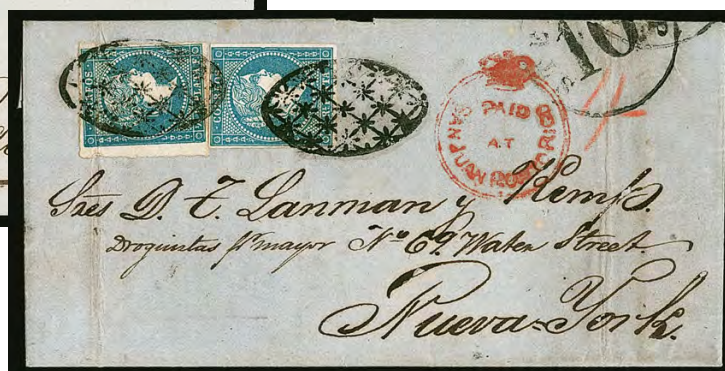 CORREOS
PAID
AT
SAN JUAN PORTO RICO
10
Sres D. T. Lanman y Kemp.
Droguistas pr mayor Nº 69. Water Street.
Nueva-York.